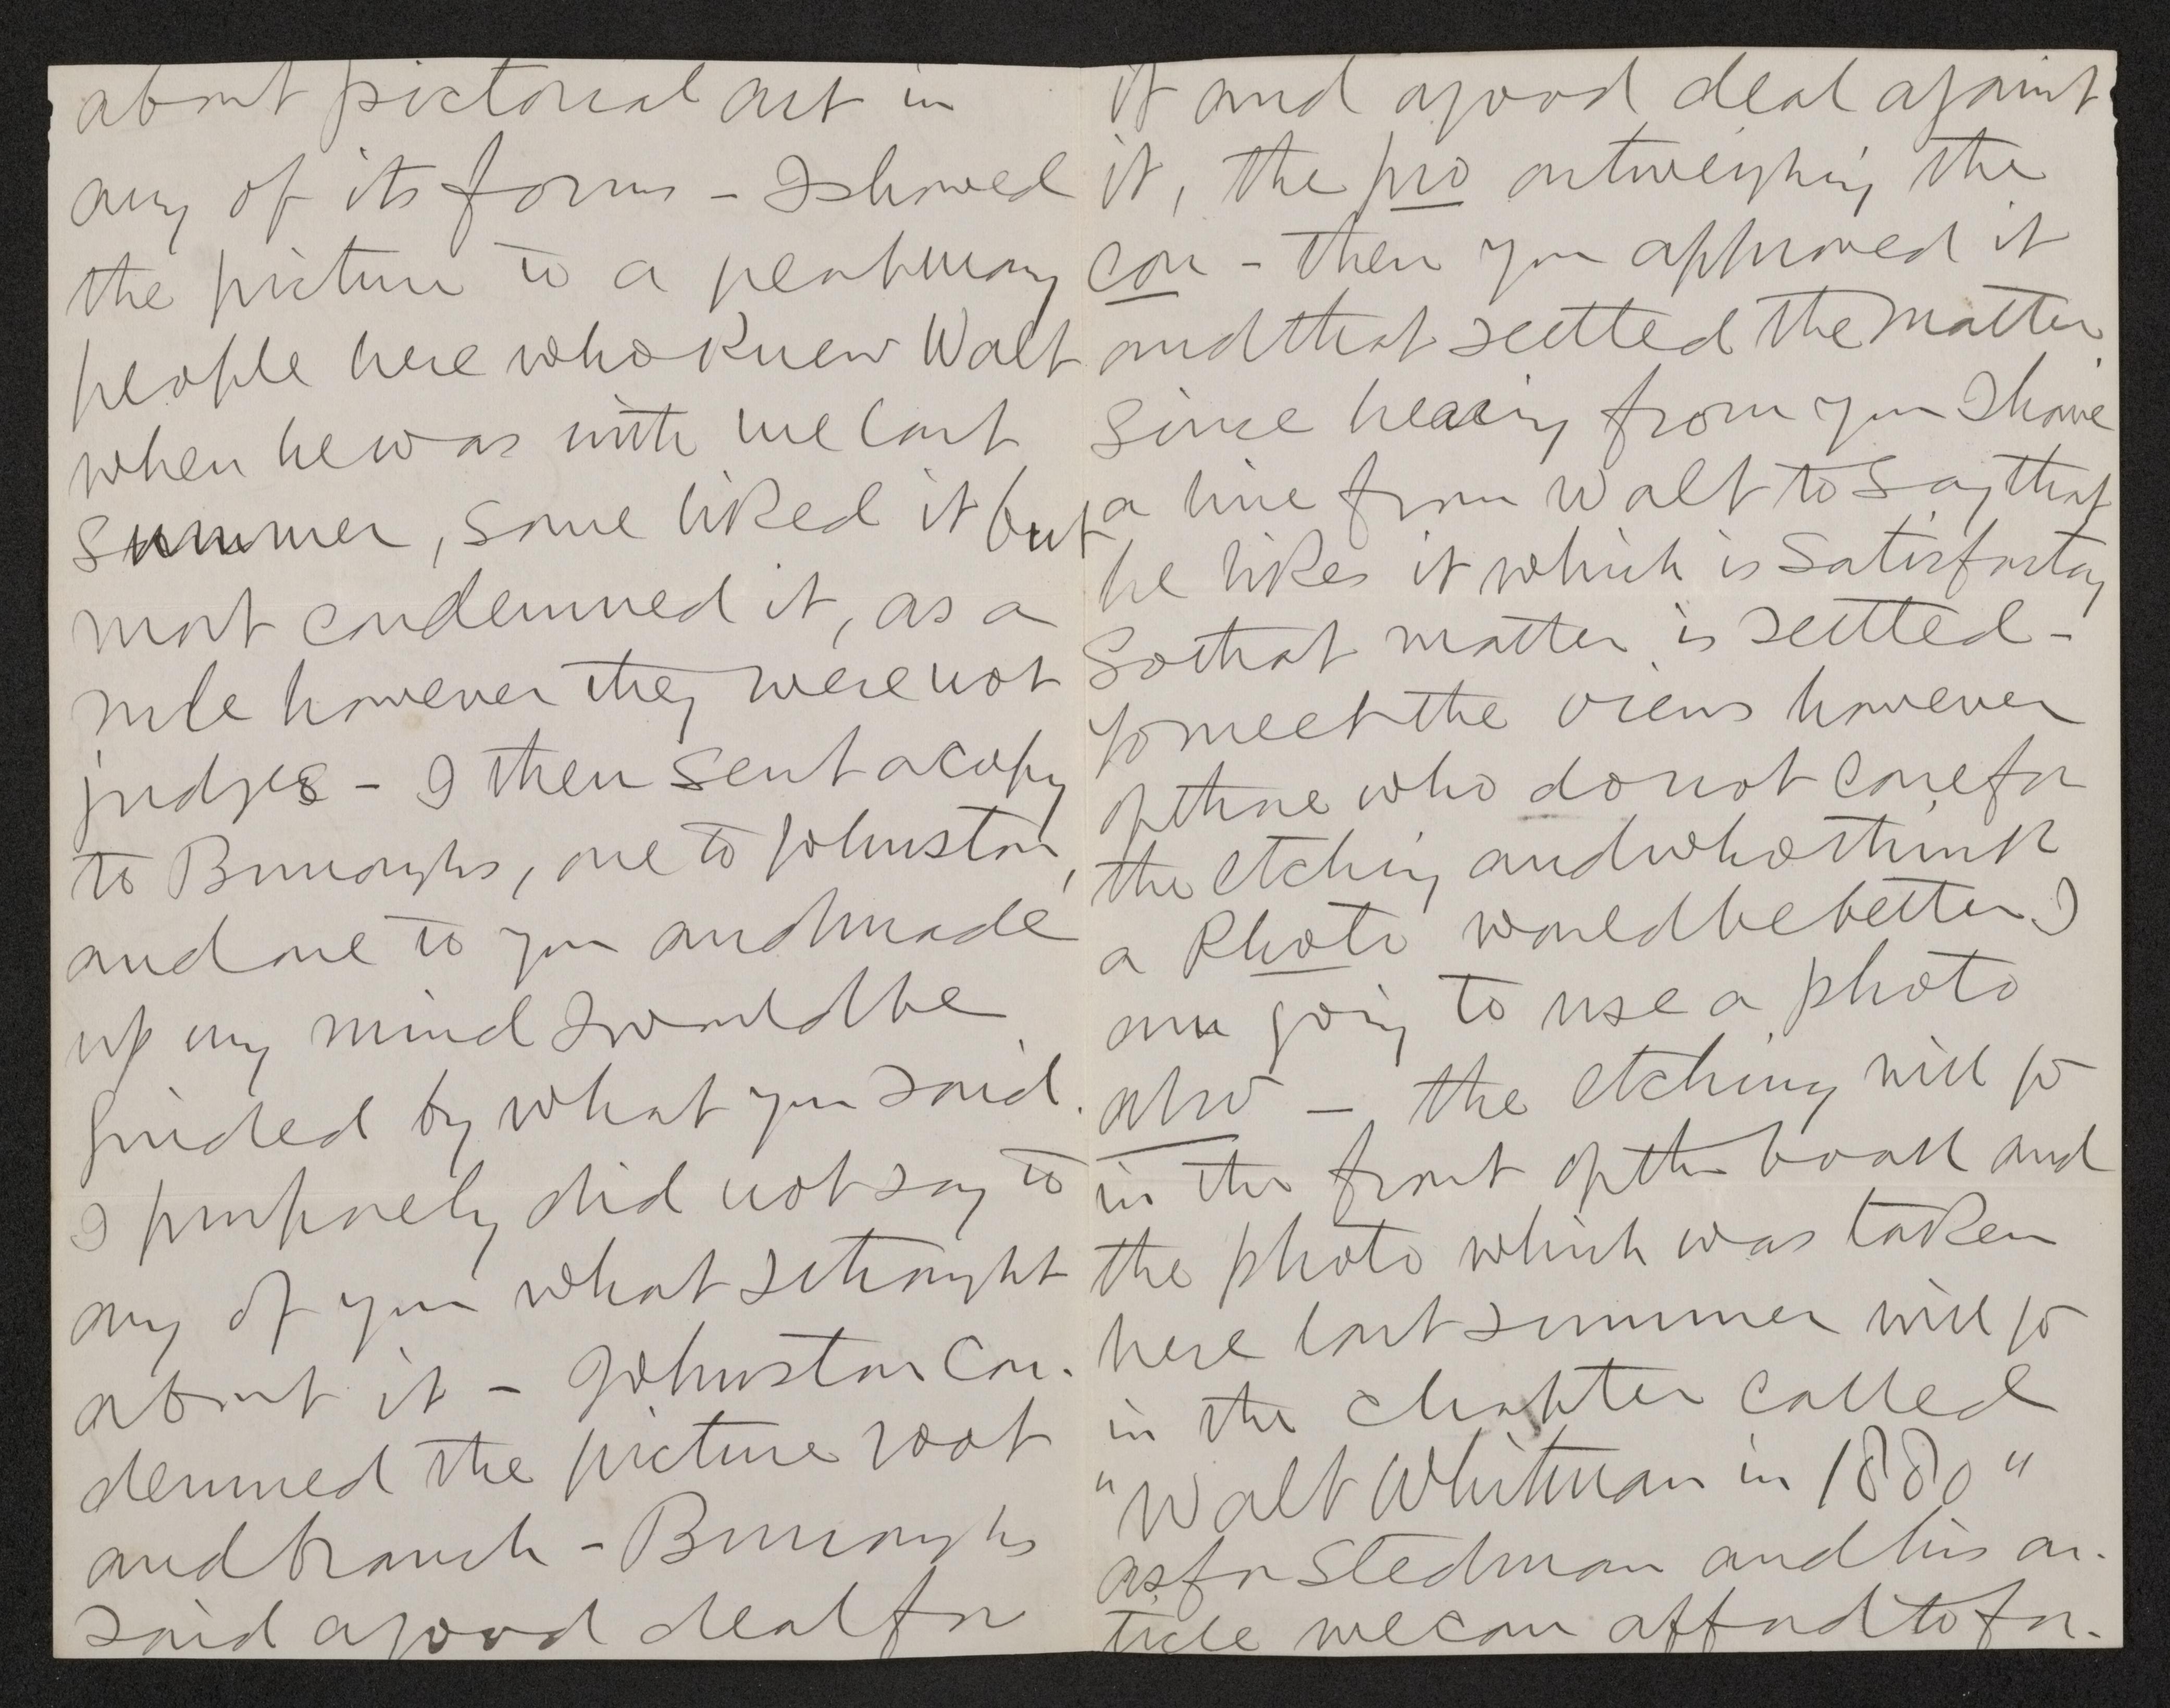 about pictorial art in
any of its forms – I showed
the picture to a great many
people here who knew Walt
when he was with me last
summer, some liked it but
most condemned it, as a
rule however they were not
judges – I then sent a copy
to Burroughs, one to Johnston,
and one to you and made
up my mind I would be
guided by what you said.
I purposely did not say to
any of you what I thought
about it – Johnston con.
demned the picture root
and branch – Burroughs
said a good deal for
it and a good deal against
it, the pro outweighing the
con – then you approved it
and that settled the matter.
Since hearing from you I have
a line from Walt to say that
he likes it which is satisfactory
So that matter is settled –
To meet the views however
of those who do not care for
the etching and who think
a Photo would be better I
am going to use a photo
also – the etching will go
in the front of the book and
the photo which was taken
here last summer will go
in the chapter called
"Walt Whitman in 1880"
as for Stedman and his ar.
ticle we can afford to for.